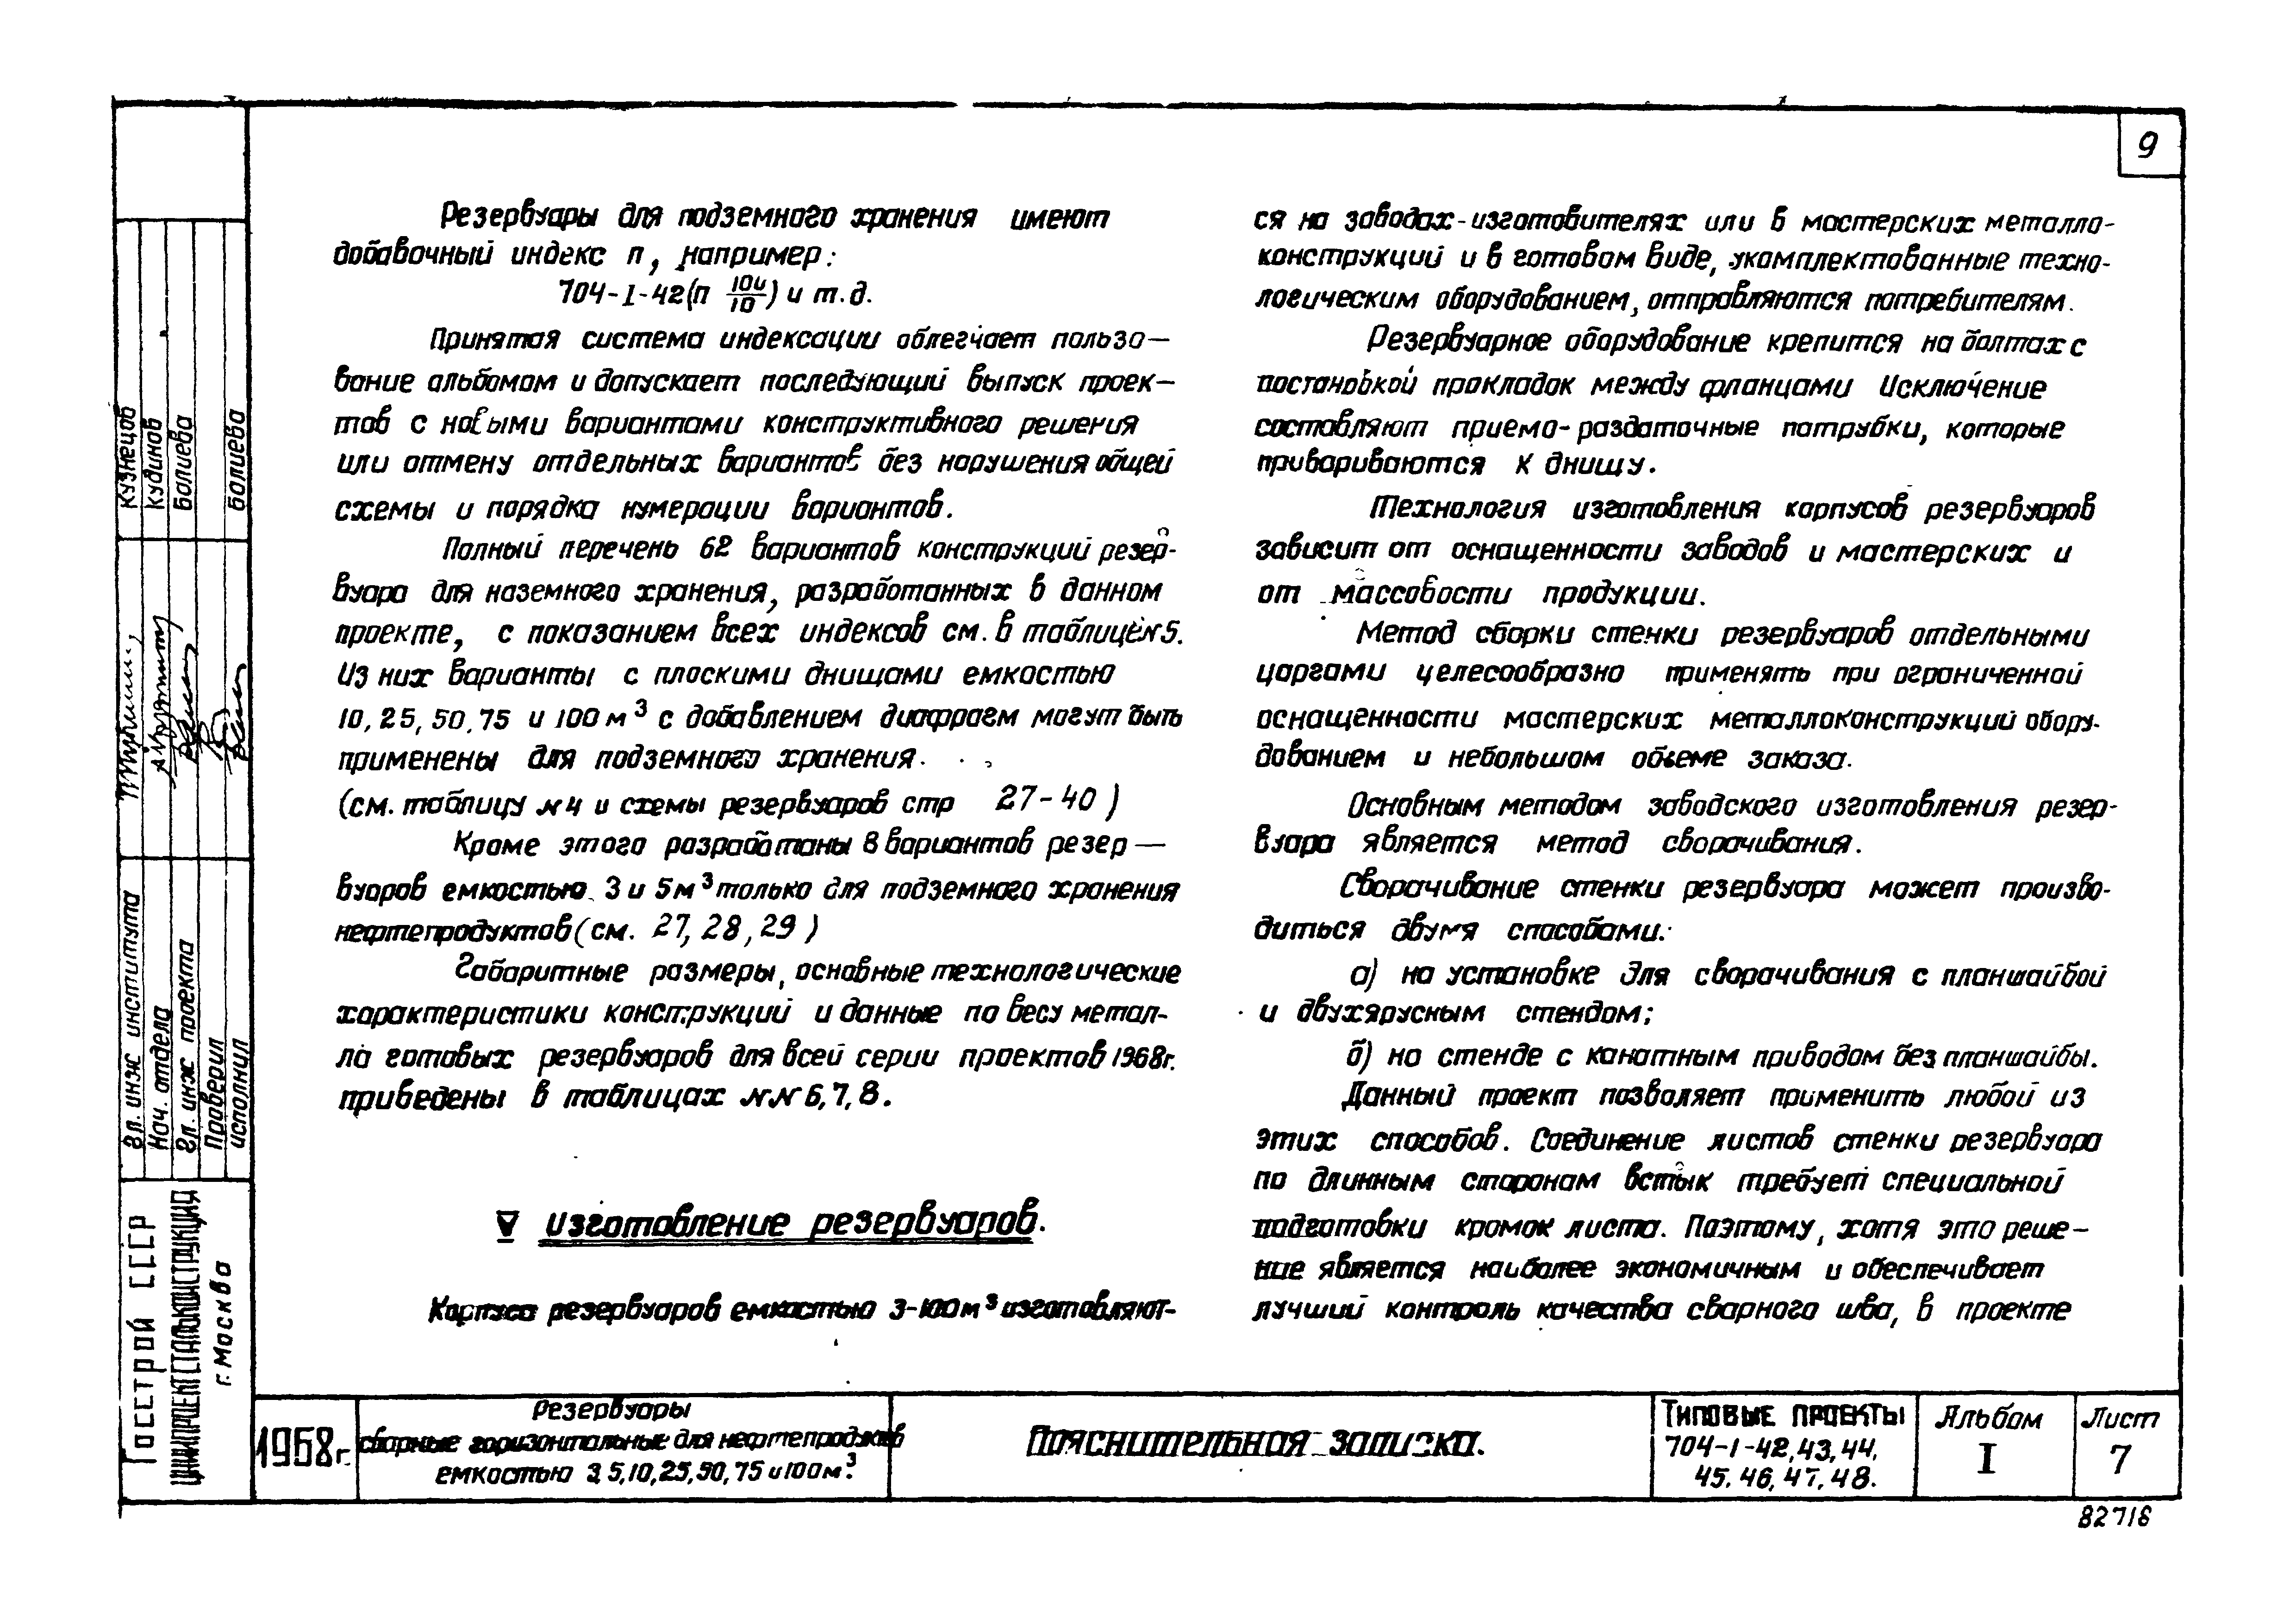 9
Резервуары для подземного хранения имеют
добавочный индекс п, например:
704-I-42(п 104/10) и т.д.
Принятая система индексации облегчает пользо—
вание альбомом и допускает последующий выпуск проек—
тов с новыми вариантами конструктивного решения
или отмену отдельных вариантов без нарушения общей
схемы и порядка нумерации вариантов.
Полный перечень 62 вариантов конструкций резер-
вуара для наземного хранения, разработанных в данном
проекте, с показанием всех индексов см. в таблице №5.
Из них варианты с плоскими днищами емкостью
10, 25, 50, 75 и 100 м³ с добавлением диафрагм могут быть
применены для подземного хранения.
(см. таблицу №4 и схемы резервуаров стр 27-40)
Кроме этого разработаны 8 вариантов резер—
вуаров емкостью 3 и 5м³ только для подземного хранения
нефтепродуктов (см. 27, 28, 29)
Габаритные размеры, основные технологические
характеристики конструкций и данные по весу метал-
ла готовых резервуаров для всей серии проектов 1968г.
приведены в таблицах №№ 6, 7, 8.
V Изготовление резервуаров.
Корпуса резервуаров емкостью 3-100м³ изготовляют-
ся на заводах-изготовителях или в мастерских металло-
конструкций и в готовом виде, укомплектованные техно-
логическим оборудованием, отправляются потребителям.
Резервуарное оборудование крепится на болтах с
постановкой прокладок между фланцами Исключение
составляют приемо-раздаточные патрубки, которые
привариваются к днищу.
Технология изготовления корпусов резервуаров
зависит от оснащенности заводов и мастерских и
от массовости продукции.
Метод сборки стенки резервуаров отдельными
царгами целесообразно применять при ограниченной
оснащенности мастерских металлоконструкций обору-
дованием и небольшом объеме заказа.
Основным методом заводского изготовления резер-
вуара является метод сворачивания.
Сворачивание стенки резервуара может произво-
диться двумя способами:
а) на установке для сворачивания с планшайбой
и двухярусным стендом;
б) на стенде с канатным приводом без планшайбы.
Данный проект позволяет применить любой из
этих способов. Соединение листов стенки резервуара
по длинным сторонам встык требует специальной
подготовки кромок листа. Поэтому, хотя это реше—
ние является наиболее экономичным и обеспечивает
лучший контроль качества сварного шва, в проекте
Гл. инж института
Кузнецов
Нач. отдела
Кудинов
Гл. инж проекта
Балиева
Проверил
исполнил
Балиева
Госстрой СССР
ЦНИИПРОЕКТСТАЛЬКОНСТРУКЦИЯ
г. Москва
1968г.
Резервуары
сборные горизонтальные для нефтепродуктов
емкостью 3, 5, 10, 25, 50, 75 и 100м³.
Пояснительная записка.
Типовые проекты
704-1-42, 43, 44,
45, 46, 47, 48.
Альбом
I
Лист
7
82718